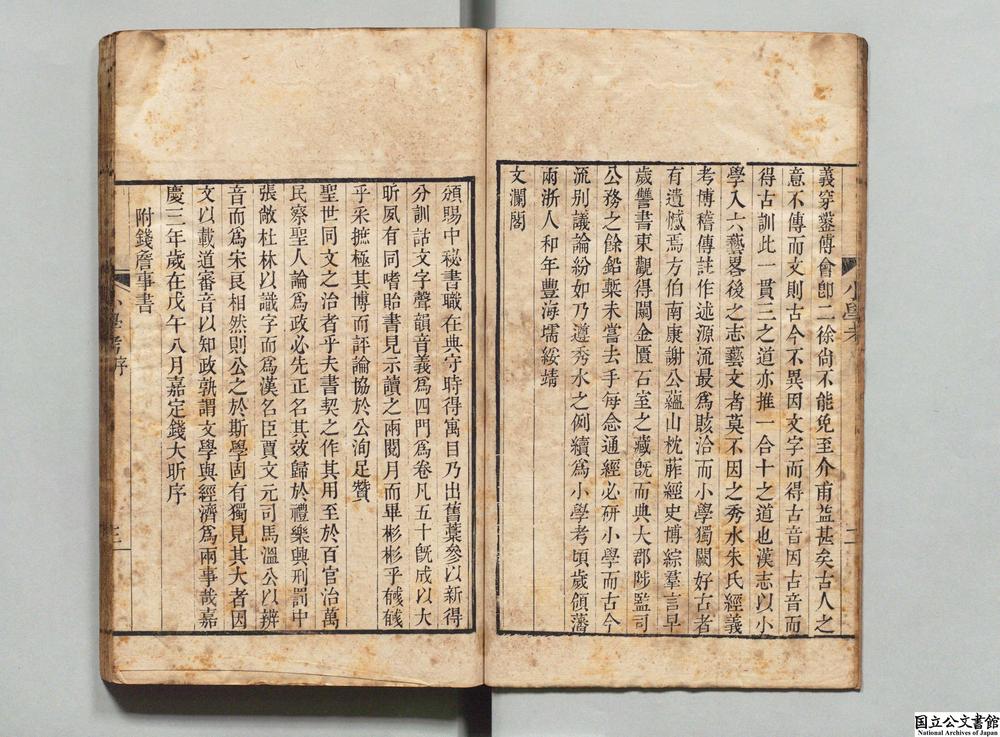 義穿鑿傅會卽二徐尙不能免至介甫益甚矣古人之
意不傳而文則古今不異因文字而得古音因古音而
得古訓此一貫三之道亦推一合十之道也漢志以小
學入六藝畧後之志藝文者莫不因之秀水朱氏經義
考博稽傳註作述源流最爲賅洽而小學獨闕好古者
有遺憾焉方伯南康謝公蘊山枕葄經史博綜羣言早
歲讐書東觀得闚金匱石室之藏旣而典大郡陟監司
公務之餘鉛槧未嘗去手每念通經必硏小學而古今
流別議論紛如乃遵秀水之例續爲小學考頃歲領藩
兩浙人和年豐海壖綏靖
文瀾閣
小學考
二
頒賜中祕書職在典守時得寓目乃出舊藁參以新得
分訓詁文字聲韻音義爲四門爲卷凡五十旣成以大
昕夙有同嗜貽書見示讀之兩閱月而畢彬彬乎棫棫
乎采摭極其博而評論協於公洵足贊
聖世同文之治者乎夫書契之作其用至於百官治萬
民察聖人論爲政必先正名其效歸於禮樂興刑罰中
張敞杜林以識字而爲漢名臣賈文元司馬溫公以辨
音而爲宋良相然則公之於斯學固有獨見其大者因
文以載道審音以知政孰謂文學與經濟爲兩事哉嘉
慶三年歲在戊午八月嘉定錢大昕序
附錢詹事書
小學考序
三
国立公文書館
National Archives of Japan